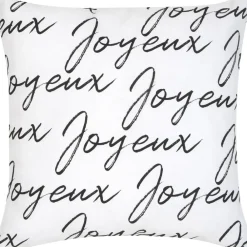 Joyeux
Joyeux
Joyeux
Joyeux Joyeux
Joyeux Joyeux
Joyeux
Joyeux